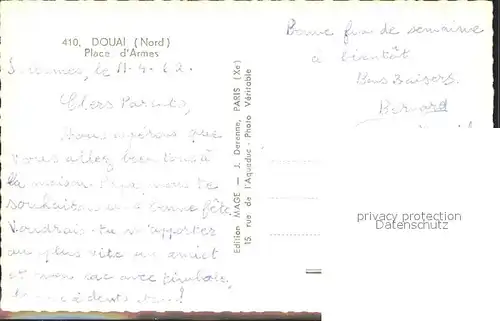 410. DOUAI (Nord)
Place d'Armes
le 11-4-62.
Chers Parents,
Nous espérons que
vous allez bien tous à
la maison. Papa, nous te
souhaitons une bonne fête
Voudrais-tu m'apporter
au plus vite un
et mon sac avec
Bonne fin de semaine
à bientôt
Bons Baisers.
Bernard
Edition MAGE — J. Derenne, PARIS (Xe)
15, rue de l'Aqueduc - Photo Véritable
privacy protection
Datenschutz